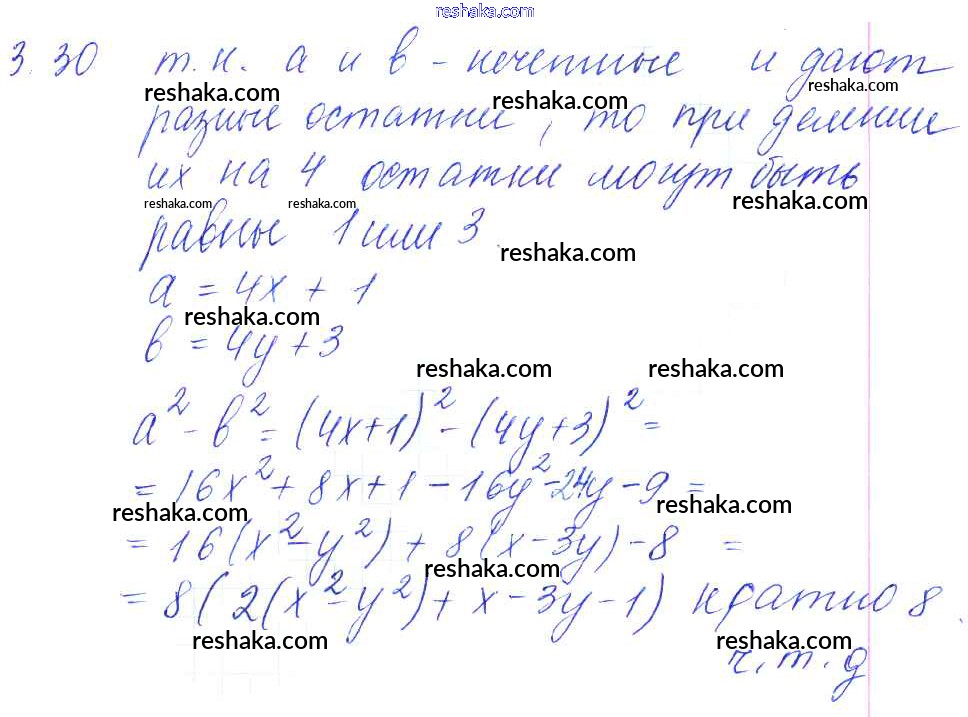 reshaka.com
3.30 т.к. а и в - нечетные и дают
reshaka.com reshaka.com reshaka.com
разные остатки, то при делении
их на 4 остатки могут быть
reshaka.com reshaka.com reshaka.com
равны 1 или 3
reshaka.com
а = 4x + 1
reshaka.com
в = 4y + 3
reshaka.com reshaka.com
а² - в² = (4x+1)² - (4y+3)² =
= 16x² + 8x + 1 - 16y² - 24y - 9 =
reshaka.com reshaka.com
= 16(x² - y²) + 8(x - 3y) - 8 =
reshaka.com
= 8(2(x² - y²) + x - 3y - 1) кратно 8.
reshaka.com reshaka.com
ч.т.д